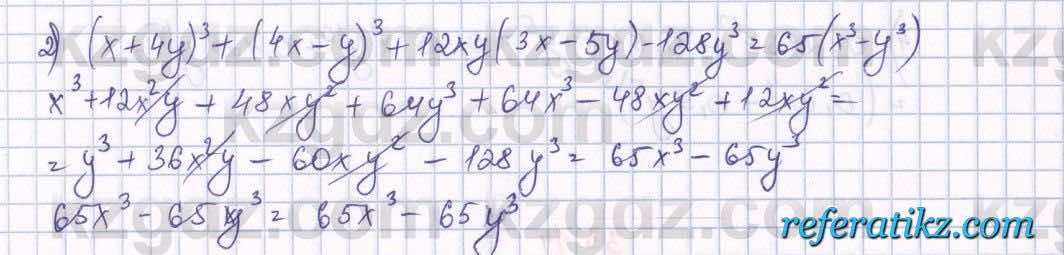 2) (x+4y)³+(4x-y)³+12xy(3x-5y)-128y³=65(x³-y³)
x³+12x²y+48xy²+64y³+64x³-48xy²+12xy²=
=y³+36x²y-60xy²-128y³=65x³-65y³
65x³-65y³=65x³-65y³
referatikz.com